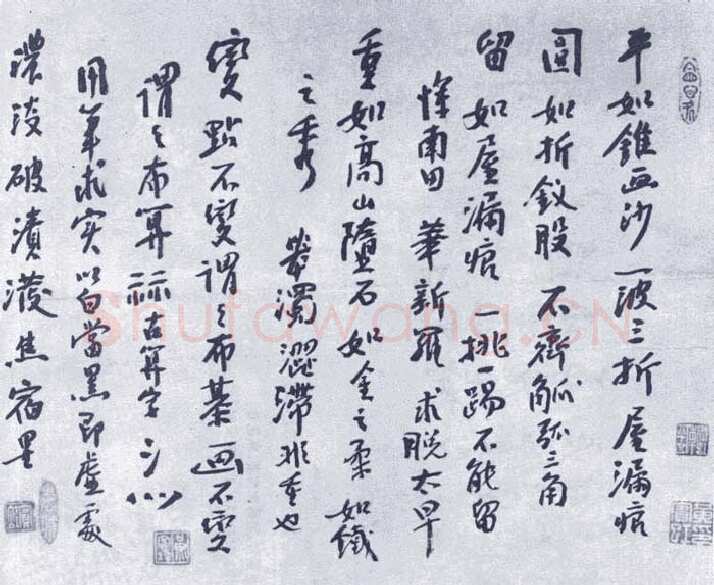 平如錐画沙 一波三折 屋漏痕
圓如折釵股 不齊觚弧三角
留如屋漏痕 一挑一踢不能留
惲南田 華新羅 求脱太早
重如高山墮石 如金之柔 如鐵
之秀 濁澀滯非重也
變 點不變謂之布棊 画不變
謂之布算 祘古算字
用筆求实以白當黑即虛處
濃淡破漬潑焦宿墨
Shufawang.CN